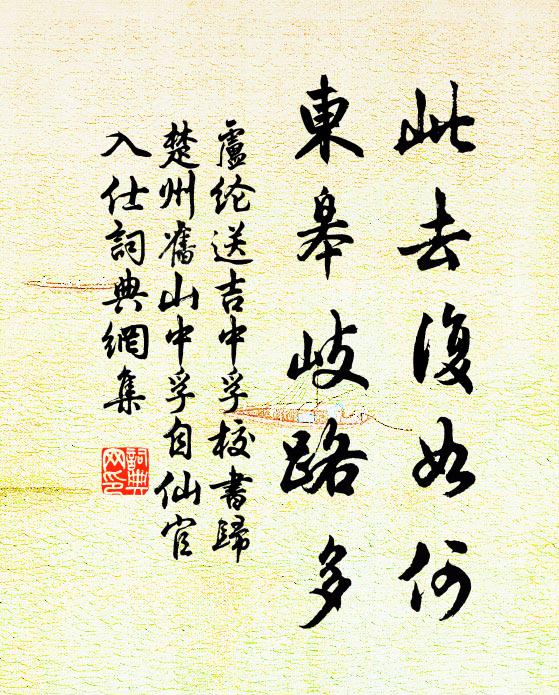 此去復如何
東皋岐路多
盧纶送吉中孚校書歸
楚州舊山中孚自仙官
入仕詞典網集
詞典网印